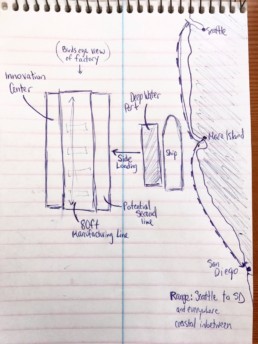 Seattle
(Birds eye view
of factory)
Innovation
Center
Deep Water
Port
Mare Island
Ship
Side
Loading
80ft
Manufacturing Line
Potential
Second
line
San
Diego
Range: Seattle to SD
and everywhere
coastal inbetween